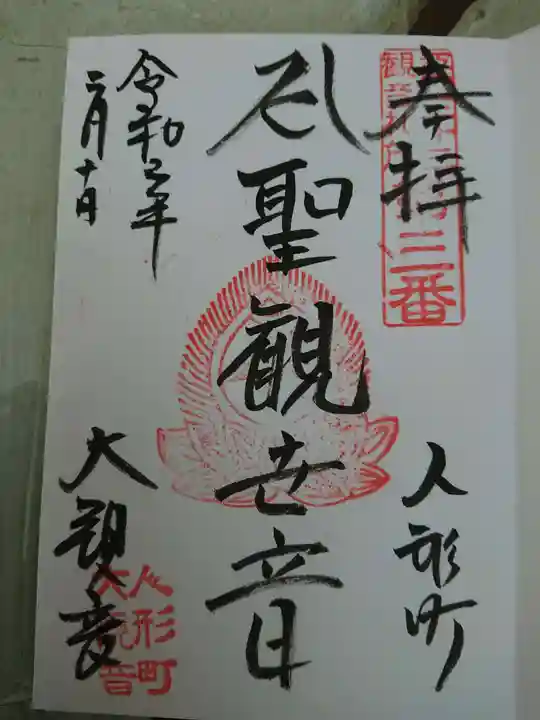 奉拝
三番
人形町
聖観世音
令和三年
二月十日
大観音
人形町
大観音